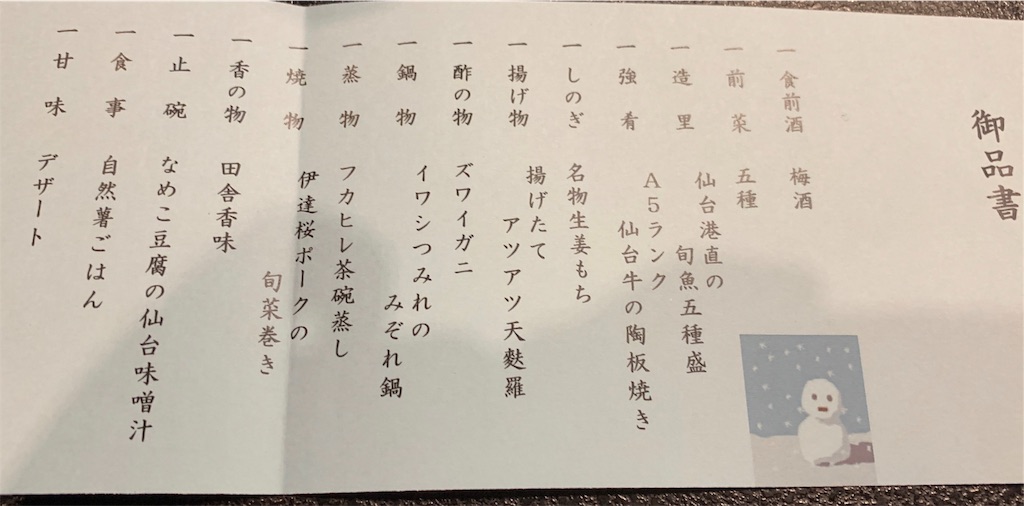 御品書
一 食前酒 梅酒
一 前菜 五種
一 造里 仙台港直の
旬魚五種盛
一 強肴 A5ランク
仙台牛の陶板焼き
一 しのぎ 名物生姜もち
一 揚げ物 揚げたて
アツアツ天麩羅
一 酢の物 ズワイガニ
一 鍋物 イワシつみれの
みぞれ鍋
一 蒸物 フカヒレ茶碗蒸し
一 焼物 伊達桜ポークの
旬菜巻き
一 香の物 田舎香味
一 止碗 なめこ豆腐の仙台味噌汁
一 食事 自然薯ごはん
一 甘味 デザート